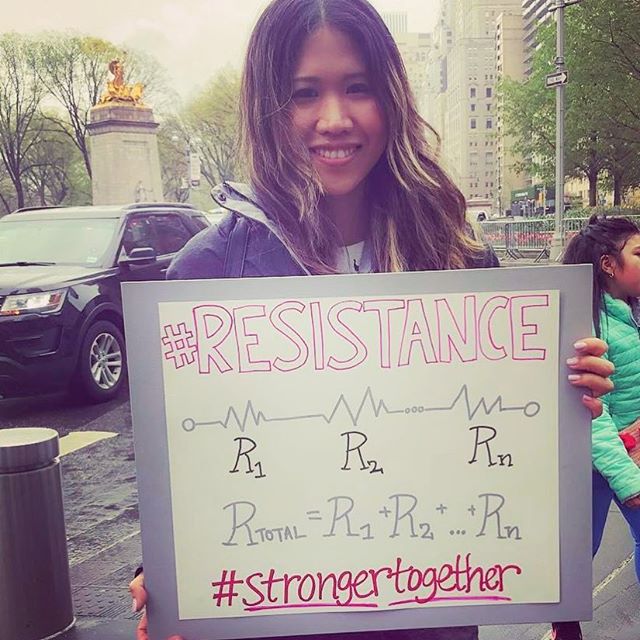 #RESISTANCE
R₁ R₂ Rₙ
R_TOTAL = R₁ + R₂ + ... + Rₙ
#strongertogether